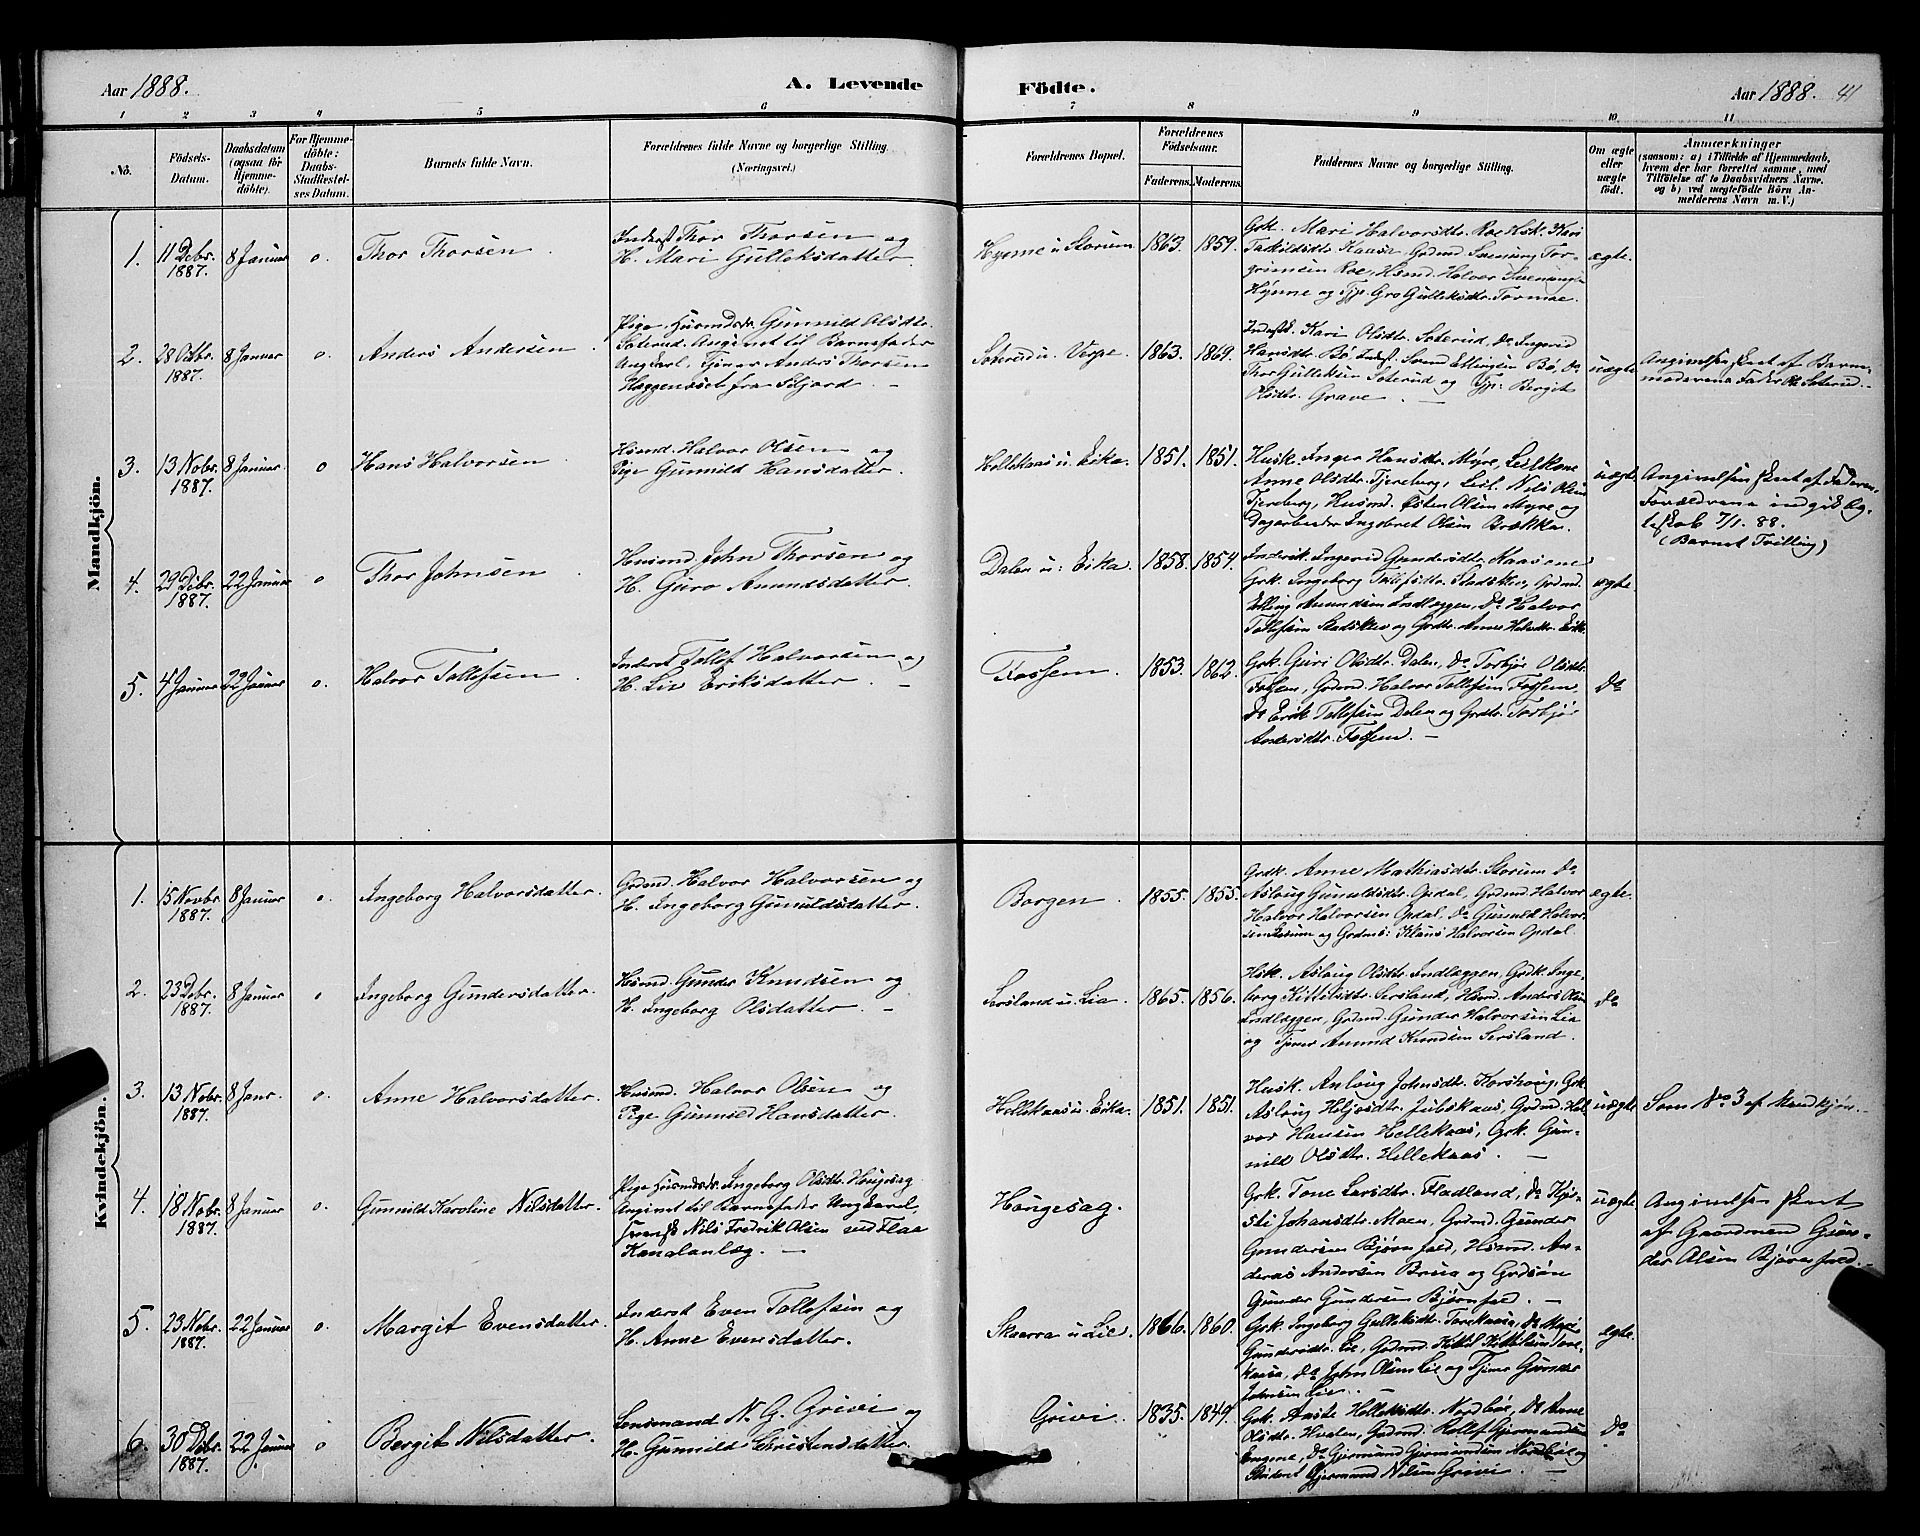 Aar 1888. A. Levende Födte. Aar 1888. 41
1 2 3 4 5 6 7 8 9 10 11
No. Födsels-Datum. Daabsdatum (ogsaa för Hjemme-döbte). For Hjemme-döbte: Daabs-Stadfæstelses Datum. Barnets fulde Navn. Forældrenes fulde Navne og borgerlige Stilling. (Næringsvei.) Forældrenes Bopæl. Forældrenes Födselsaar. Faderens. Moderens. Faddernes Navne og borgerlige Stilling. Om ægte eller uægte födt. Anmærkninger (saasom: a) i Tilfælde af Hjemmedaab, hvem der har forrettet samme, med Tilföielse af to Daabsvidners Navne, og b) ved uægtefödte Börn Anmelderens Navn m. V.)
Mandkjön.
1. 11 Debr. 1887. 8 Januar o. Thor Thorsen.
Inderst Thor Thorsen og
H. Mari Gulleksdatter.
Hynne u. Storum 1863. 1859.
Grk. Mari Halvorsdtr. Roe Hsk. Kari
Kaasa, Grdmd. Svenung Tor-
grimsen Roe, Hsmd. Halvor Svenungs.
Hynne og Tjp. Gro Gulleksdtr. Tormoe.
ægte.
2. 28 Octbr. 1887. 8 Januar o. Anders Andersen.
Pige, Husmdsdr. Gunnild Olsdtr.
Soterud. Angivet til Barnefader
Ungkarl, Tjener Anders Thorsen
Heggenæset fra Siljord. —
Soterud u. Verpe. 1863. 1869.
Inderstk. Kari Olsdtr. Soterud, Do Ingerid
Hansdtr. Bø, Inderst. Svend Ellingsen Bø, Do
Thor Gulleksen Soterud og Tjp. Bergit
Olsdtr. Grave. —
uægte
Angivelsen skeet af Barne-
moderens Fader Ole Soterud. —
3. 13 Nobr. 1887. 8 Januar. o Hans Halvorsen.
Hsmd. Halvor Olsen og
Pige Gunnild Hansdatter.
Hellekaas u. Eika. 1851. 1851.
Husk. Inger Hansdtr. Myre, Leilkone
Anne Olsdtr. Tjereberg, Leil. Nils Olsen
Tjereberg, Husmd. Østen Olsen Myre og
Dagarbeider Ingebret Olsen Brækka.
uægte
Angivelsen skeet af Faderen.
Forældrene indgik Eg-
teskab 7/1. 88.
(Barnet Tvilling)
4. 29 Debr. 1887. 22 Januar o Thor Johnsen.
Husmd John Thorsen og
H. Guro Amundsdatter.
Dalen u: Eika 1858. 1854.
Inderstk. Ingerid Gundersdtr. Kaasene
Grk. Ingeborg Tollefsdtr. Stadskleiv, Grdmd.
Elling Amundsen Indlæggen, Do Halvor
Tollefsen Stadskleiv og Grdtr. Anne Halvdtr. Eik.
ægte.
5. 4 Januar 22 Januar o. Halvor Tollefsen.
Inderst Tollef Halvorsen og
H. Liv Eriksdatter. —
Fossem. 1853. 1862.
Grk. Guri Olsdtr. Dalen, Do Torbjør Olsdtr.
Fossem, Grdmd. Halvor Tollefsen Fossem,
Do Erik Tollefsen Dalen og Grdtr. Torbjør
Andersdtr. Fossem. —
Do
Kvindekjön.
1. 15 Novbr. 1887. 8 Januar o. Ingeborg Halvorsdatter.
Grdmd. Halvor Halvorsen og
H. Ingeborg Gunnuldsdatter.
Borgen. 1855. 1855.
Grdk. Anne Mathiasdtr. Storum Do
Aslaug Gunuldsdtr. Opdal, Grdmd. Halvor
Halvor Halvorsen Opdal, Do Gunuld Halvor-
sen Storum og Grdmds: Klaus Halvorsen Opdal.
ægte.
2. 23 Debr. 1887. 8 Januar o Ingeborg Gundersdatter.
Husmd. Gunder Knudsen og
H. Ingeborg Olsdatter. —
Sersland u. Lie. 1865. 1856.
Hsk. Aslaug Olsdtr. Indlæggen, Grdk. Inge-
borg Kittilsdtr. Sersland, Hsmd. Anders Olsen
Indlæggen, Grdmd. Gunder Halvorsen Lie
og Tjener Amund Knudsen Sersland.
Do
3. 13 Nobr. 1887. 8 Janr. o. Anne Halvorsdatter.
Husmd. Halvor Olsen og
Pige Gunnild Hansdatter.
Hellekaas u. Eika. 1851. 1851.
Husk. Aslaug Johnsdtr. Korshoug, Grk.
Aslaug Heljesdtr. Jubskaas, Grdmd. Hal-
vor Hansen Hellekaas, Grk. Gun-
nild Olsdtr. Hellekaas. —
uægte
Som No 3 af Mandkjøn. —
4. 18 Nobr. 1887. 8 Januar o. Gunnild Karoline Nilsdatter.
Pige Husmdsdr. Ingeborg Olsdtr. Hougesag
Angivet til Barnefader Ungkarl,
Nils Fredrik Olsen ved Flaa
Kanalanlæg. —
Hougesag.
Grk. Tone Larsdtr. Fladland, Do Kjø-
sti Johansdtr. Moen, Grdmd. Gunder
Gundersen Bjørnfald, Hsmd. An-
dreas Andersen Brua og Grdsøn
Gunder Gundersen Bjørnfald. —
uægte.
Angivelsen skeet
af Gaardmen Gun-
der Olsen Bjørnfald. —
5. 23 Nobr. 1887. 22 Januar o. Margit Evensdatter.
Inderst Even Tollefsen og
H. Anne Evensdatter.
Skaarra u Lie. 1866. 1860.
Grk. Ingeborg Gulleksdtr. Torekaasa, Do Mari
Gundersdtr. Lie, Grdmd. Kittil Kittilsen Tore-
kaasa, Do John Olsen Lie og Tjener Gunder
Johnsen Lie. —
ægte.
6. 30 Debr. 1887. 22 Januar o Bergit Nilsdatter.
Lensmand N. G. Grivi og
H. Gunnild Christensdatter.
Grivi. 1835. 1849.
Grk. Aaste Helleksdtr. Nordbøe, Do Anne
Olsdtr. Hvalen, Grdmd. Rollef Gjermundsen
Engene, Do Gjermund Gjermundsen Nordbø og
Student Gjermund Nilsen Grivi. —
Do